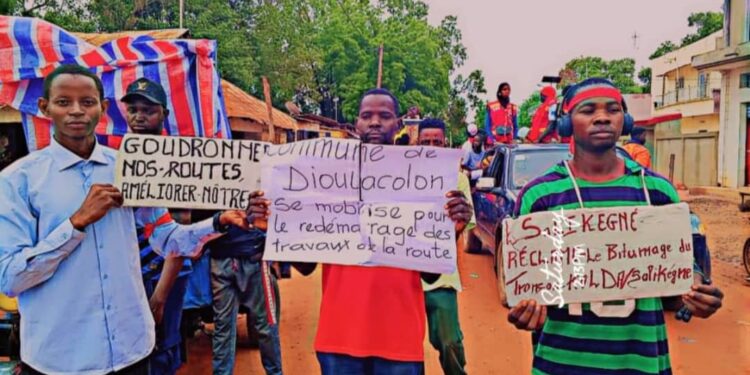 GOUDRONNE
NOS-ROUTES,
AMÉLIORER-NÔTRE
COMMUNE de
DIOULACOLON
Se mobilise pour
le redémarrage des
travaux de la route
SALIKEGNÉ
RÉCLAME Le Bitumage du
Saturday